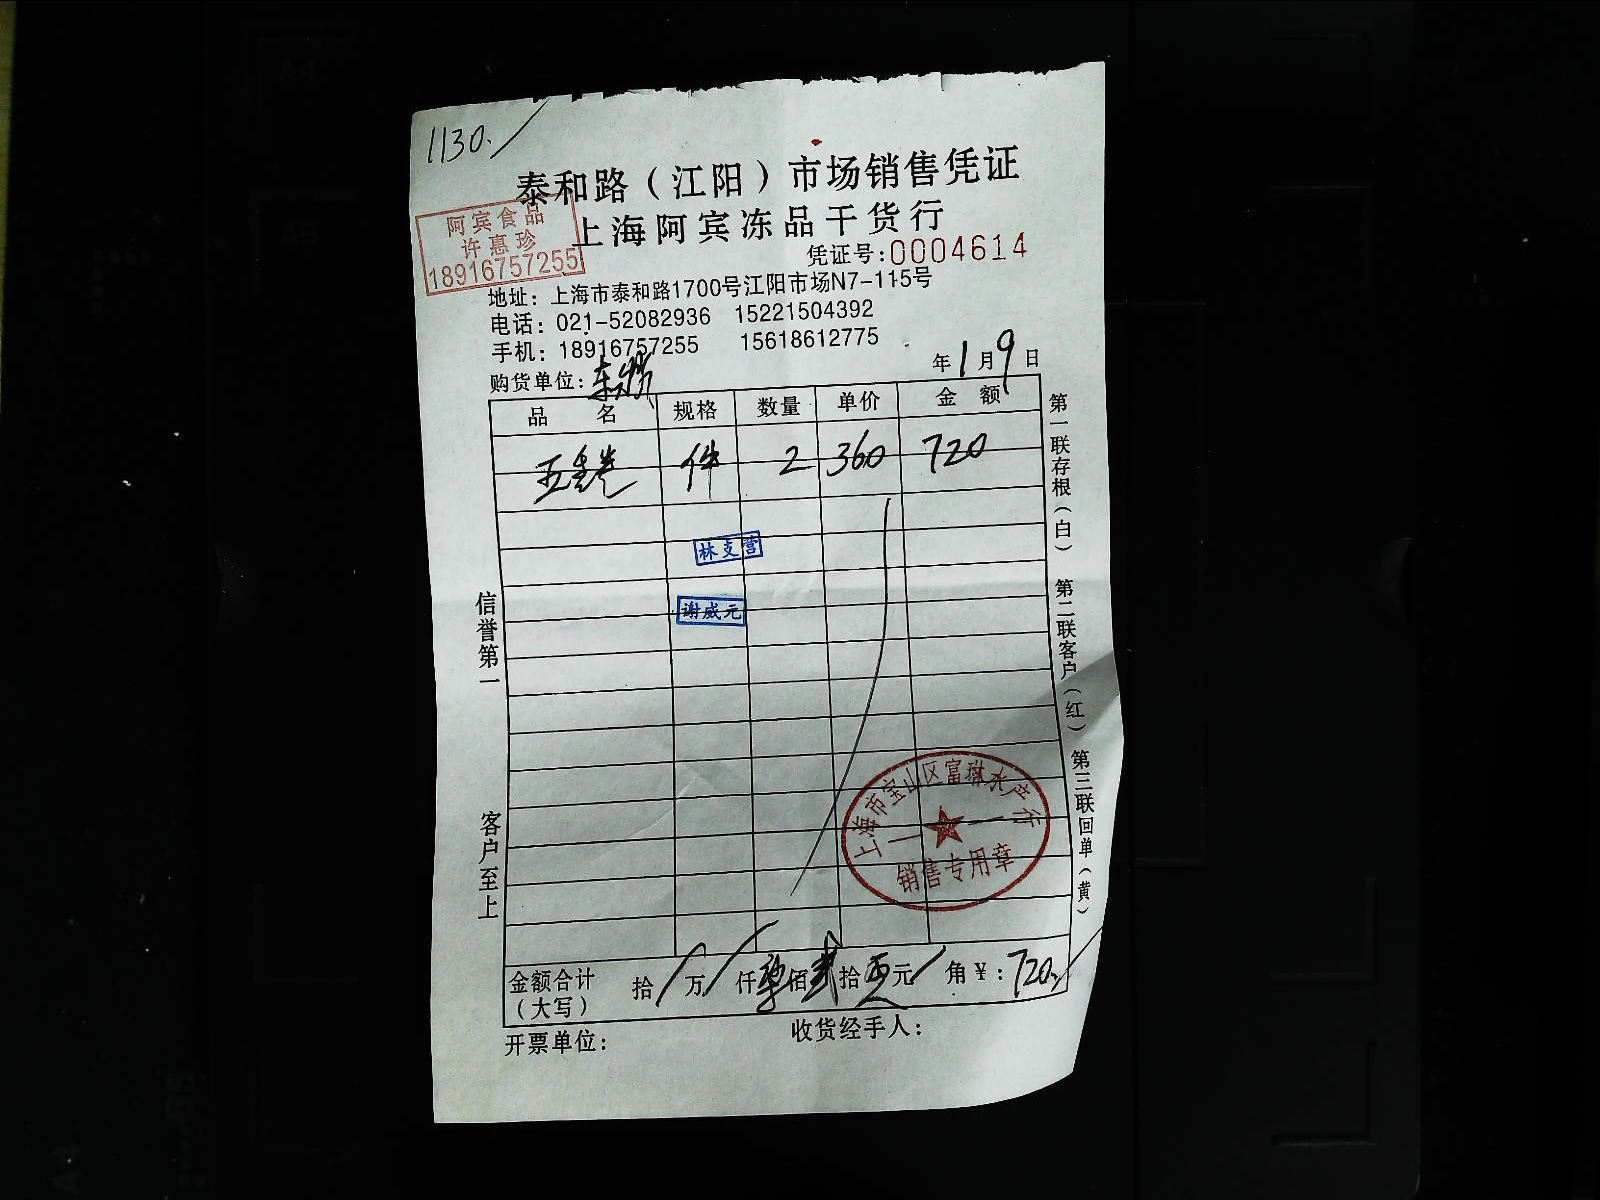 1130.
泰和路（江阳）市场销售凭证
上海阿宾冻品干货行
阿宾食品
许惠珍
18916757255
凭证号:0004614
地址：上海市泰和路1700号江阳市场N7-115号
电话：021-52082936 15221504392
手机：18916757255 15618612775
年1月9日
购货单位：
品名 规格 数量 单价 金额
件 2 360 720
林支营
谢威元
信誉第一
客户至上
第一联存根（白） 第二联客户（红） 第三联回单（黄）
上海市宝山区富琳水产行
销售专用章
金额合计（大写） 拾 万 仟柒佰贰拾 元 角￥：720
开票单位： 收货经手人：